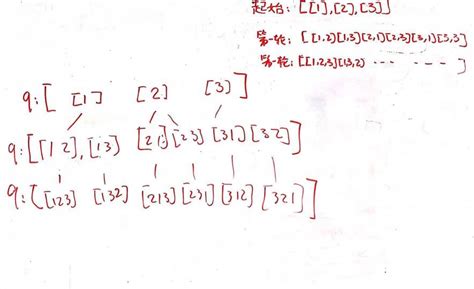 起始: [[1],[2],[3]]
第一轮: [[1,2][1,3][2,1][2,3][3,1][3,3]
第一轮: [[1,2,3][13,2) ... ... ]
q:[ [1] [2] [3] ]
q:[[1 2],[13] [21] [23] [31] [32]]
q:[[123] [132] [213] [231] [312] [321]]